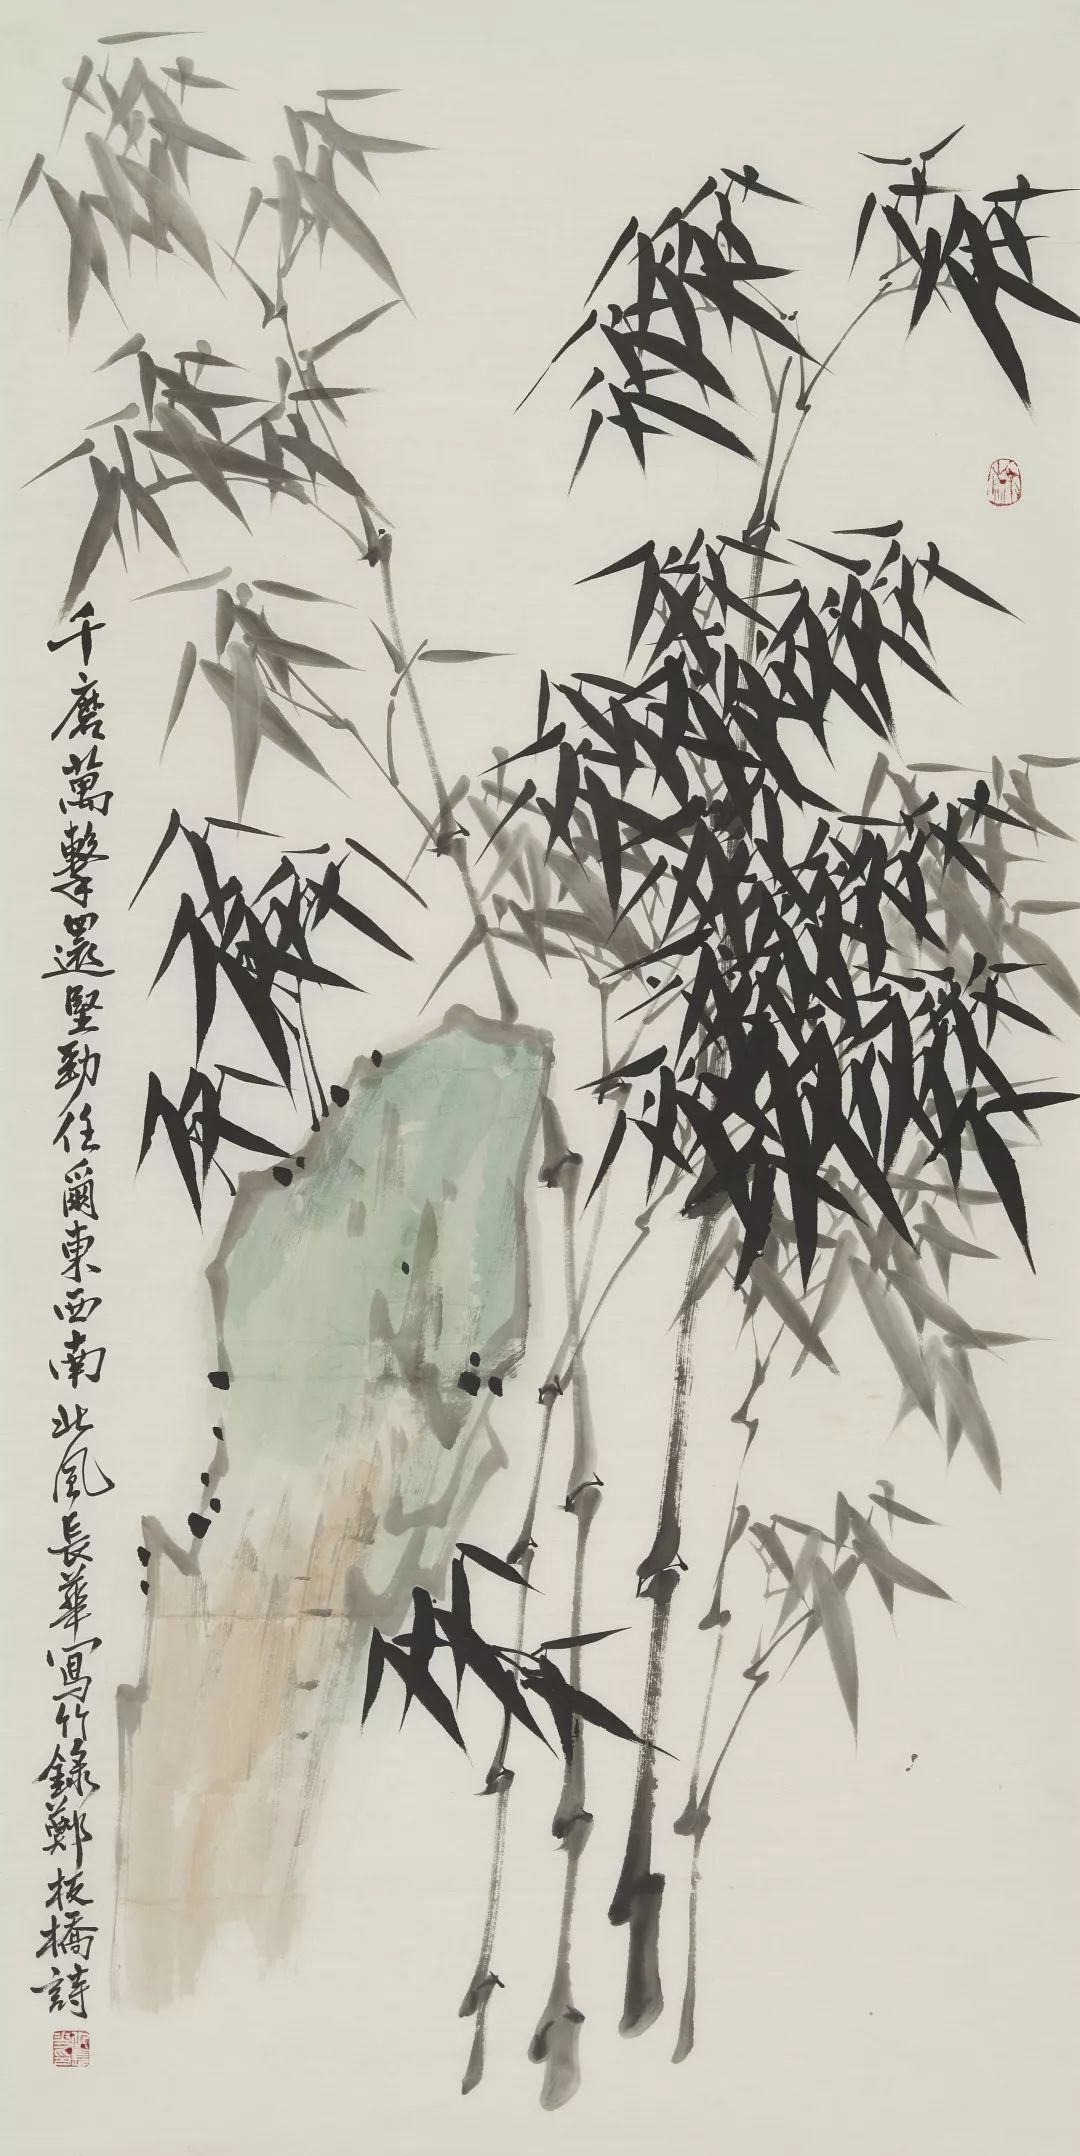 千磨萬擊還堅勁任爾東西南北風長華寫竹錄鄭板橋詩